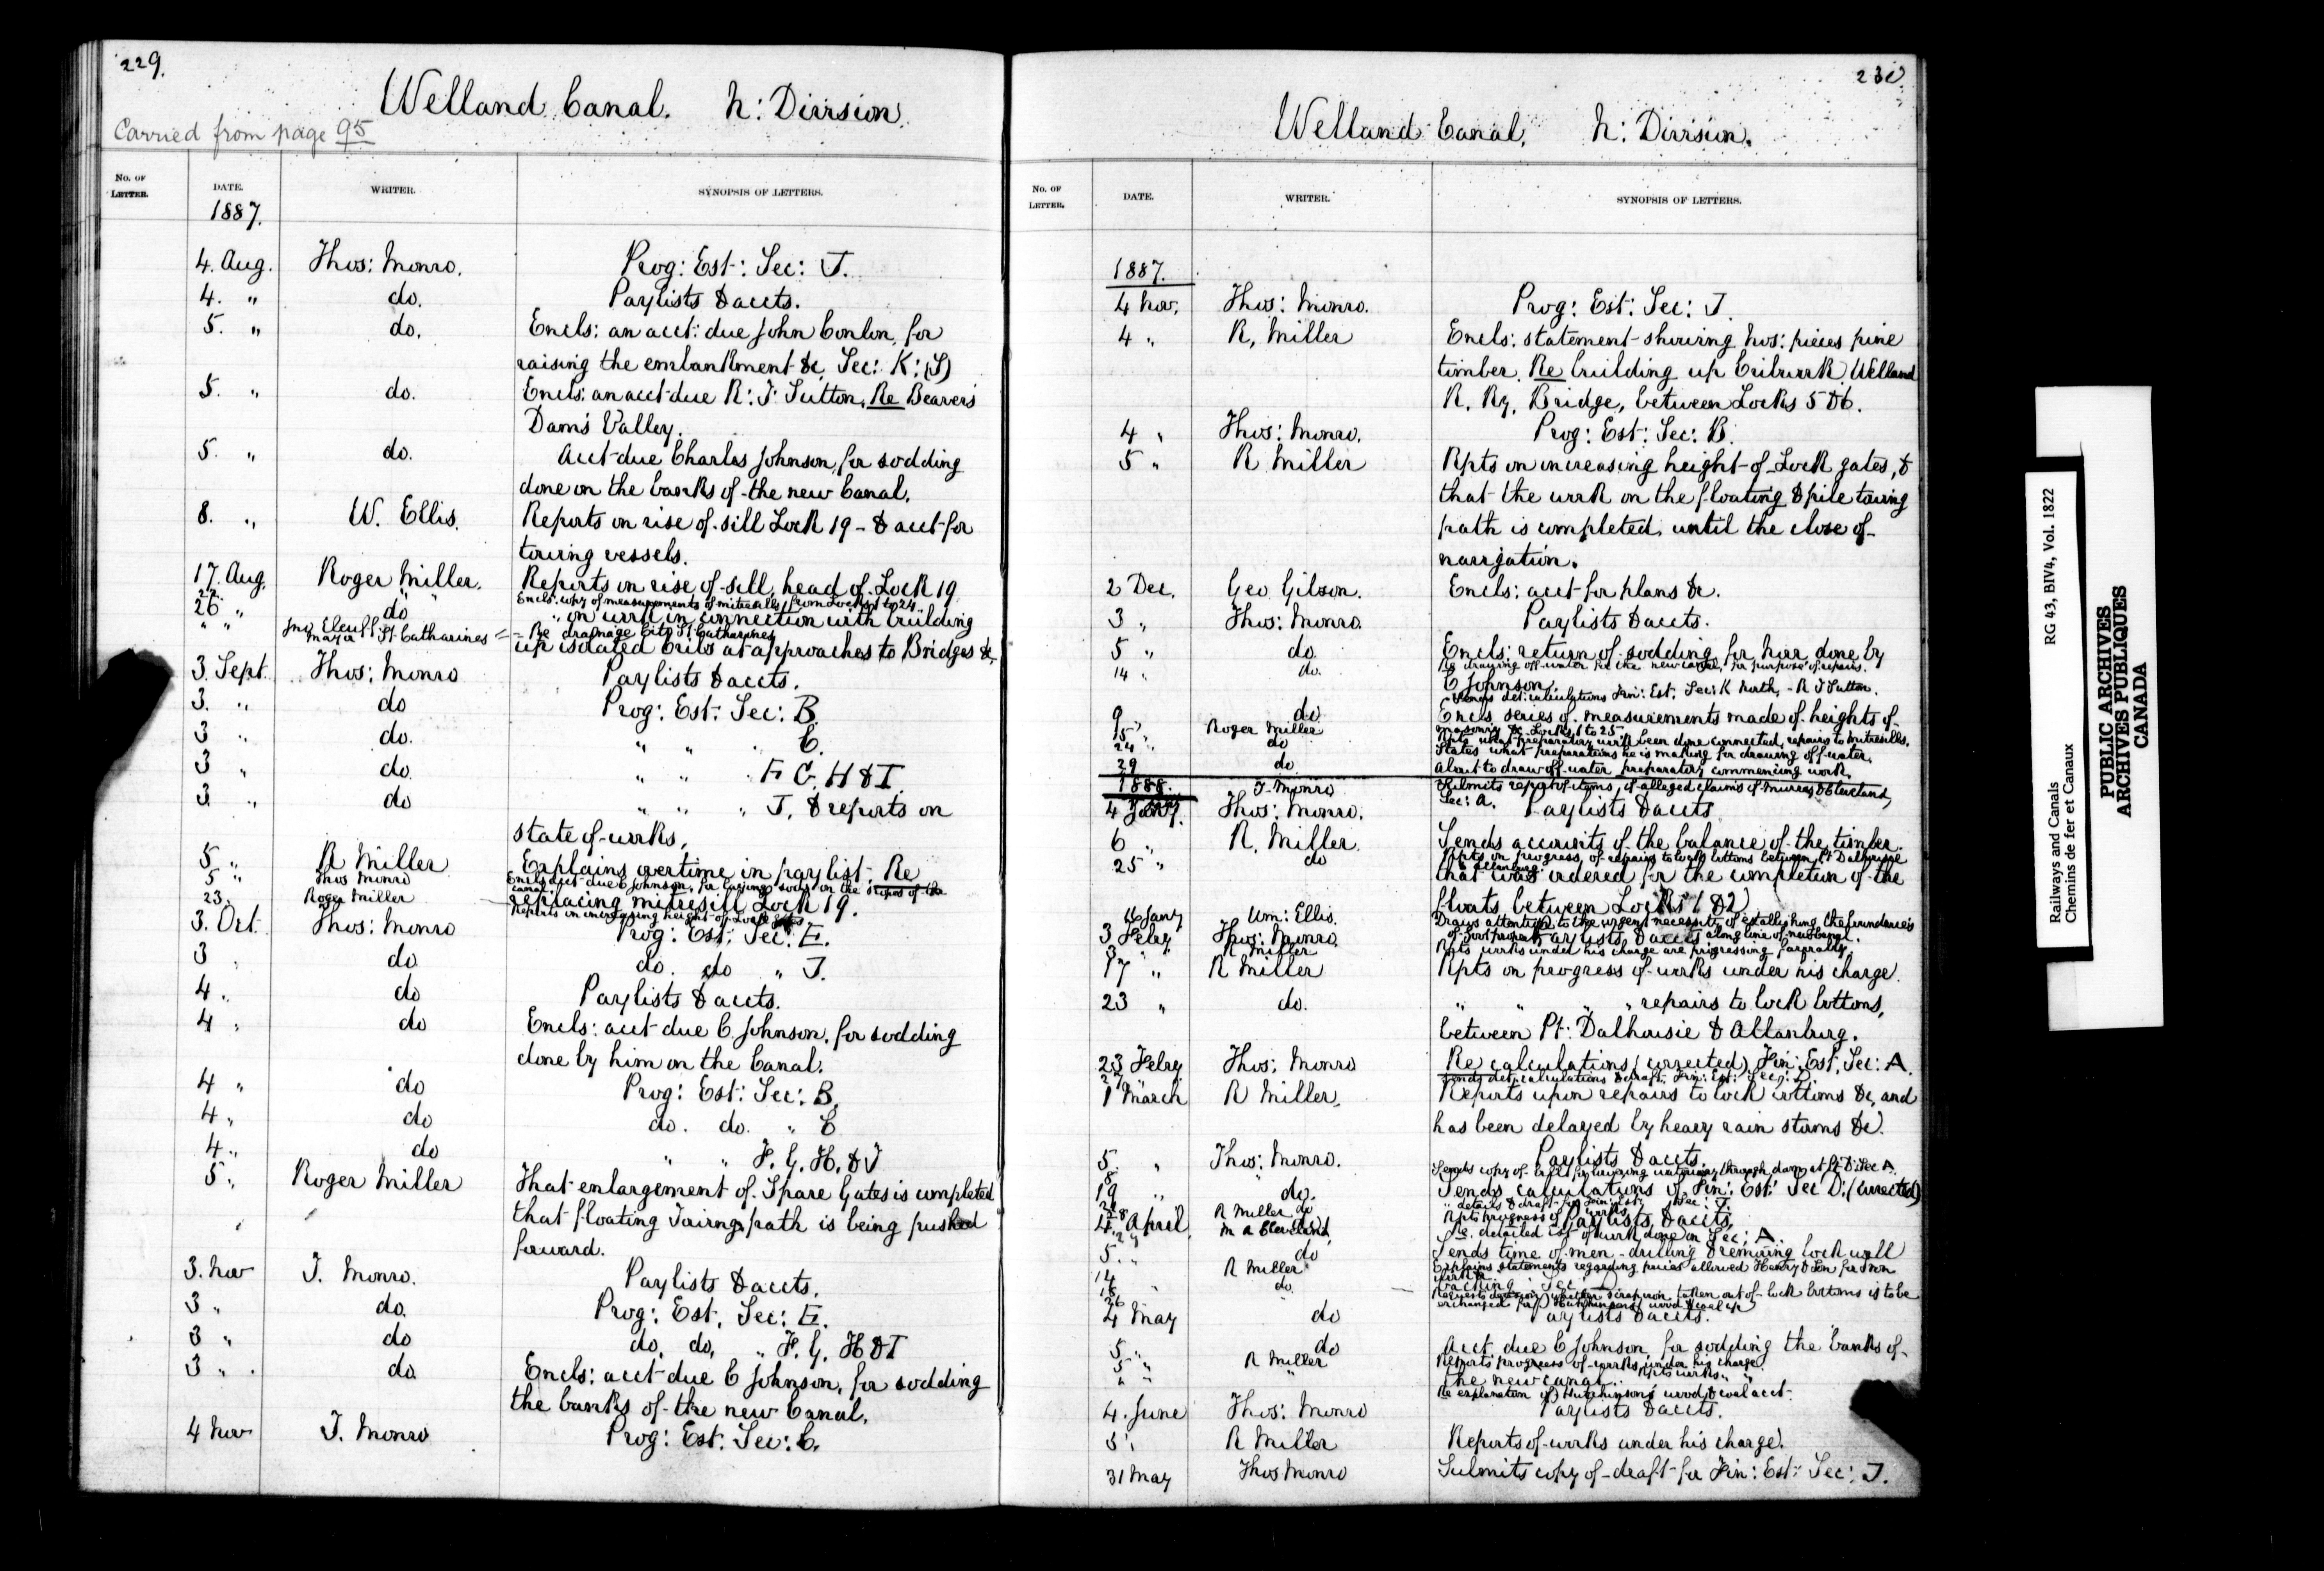 229.
Welland Canal. N: Division.
Carried from page 95
No. OF LETTER. DATE. WRITER. SYNOPSIS OF LETTERS.
1887.
4. Aug. Thos: Monro. Prog: Est: Sec: J.
4. " do. Paylists & accts.
5. " do. Encls: an acct: due John Conlon, for
raising the embankment &c, Sec: K: (S)
5. " do. Encls: an acct due R: J: Sutton, Re Beavers
Dam's Valley.
5. " do. Acct due Charles Johnson, for sodding
done on the banks of the new Canal.
8. " W. Ellis. Reports on rise of sill Lock 19 - & acct for
towing vessels.
17. Aug. Roger Miller. Reports on rise of sill, head of Lock 19
22. " " Encls: copy of measurements of mitresills, from Locks 1 to 24.
26 " do " on work in connection with building
" " Mayor St. Catharines - Re drainage City St. Catharines
up isolated cribs at approaches to Bridges &c,
3. Sept. Thos: Monro Paylists & accts.
3. " do Prog: Est: Sec: B.
3 " do. " " " C.
3 " do. " " " F G. H & I
3. " do " " " J. & reports on
state of works,
5 " R Miller Explains overtime in paylist. Re
5 " Thos Monro Encls acct due C Johnson, for laying sods on the slopes of the
canal.
replacing mitresill Lock 19.
23. Roger Miller Reports on increasing height of Lock gates
3. Oct. Thos: Monro Prog: Est: Sec: E.
3 " do do. do " J.
4. " do Paylists & accts.
4 " do Encls: acct due C. Johnson, for sodding
done by him on the Canal.
4 " do Prog: Est: Sec: B.
4 " do do. do. " C
4 " do " " F. G. H. & I
5 " Roger Miller That enlargement of Spare Gates is completed
that floating Towing path is being pushed
forward.
3. Nov T. Monro. Paylists & accts.
3 " do. Prog: Est. Sec: E.
3 " do do. do, " F. G. H & I
3 " do. Encls: acct due C Johnson, for sodding
the banks of the new Canal.
4 Nov T. Monro Prog: Est: Sec: C.
230
Welland Canal, N: Division.
No. OF LETTER. DATE. WRITER. SYNOPSIS OF LETTERS.
1887.
4 Nov. Thos: Monro. Prog: Est: Sec: J.
4 " R. Miller Encls: statement showing Nos: pieces pine
timber. Re building up Cribwork Welland
R. Ry. Bridge, between Locks 5 & 6.
4 " Thos: Monro. Prog: Est: Sec: B.
5 " R Miller Rpts on increasing height of Lock gates, &
that the work on the floating & pile towing
path is completed, until the close of
navigation.
2 Dec. Geo Gibson. Encls: acct for plans &c.
3 " Thos: Monro. Paylists & accts.
5 " do. Encls: return of sodding for hier done by
14 " do. Re drawing off water for the new canal, for purpose of repairs.
C Johnson.
Sends det: calculations Fin: Est. Sec: K North, - R J Sutton.
9 do. Encls series of measurements made of heights of
masonry &c Locks 1 to 25
15 " Roger Miller Rpts what preparatory work been done connected, repairs to mitresills.
24 " do States what preparations he is making for drawing off water.
29 do About to draw off water preparatory commencing work.
1888. T. Monro Submits report of items, of alleged claims of Murray & Cleveland,
Sec: A.
4 Jany. Thos: Monro. Paylists & accts
6 " R. Miller. Sends accounts of the balance of the timber
25 " do Rpts on progress of repairs to locks bottoms between Pt Dalhousie
& Allanburg.
that was ordered for the completion of the
floats between Locks 1 & 2
Jany Wm: Ellis. Draws attention to the urgent necessity of establishing the boundaries
of Govt property along line of new Canal.
3 Feby Thos: Monro. Paylists & accts
3 " R Miller Rpts works under his charge are progressing favorably
17 " R Miller Rpts on progress of works under his charge.
23 " do. " " " " repairs to lock bottoms,
between Pt: Dalhousie & Allanburg.
23 Feby Thos: Monro Re calculations (corrected) Fin: Est. Sec: A.
27 " Sends det. calculations & draft, Fin: Est: Sec: D.
1 March R Miller. Reports upon repairs to lock bottoms &c, and
has been delayed by heavy rain storms &c.
5. " Thos: Monro. Paylists & accts
8. Sends copy of
19 " do. Sends calculations of Fin: Est: Sec D: (corrected)
" details & draft for Fin: Est: Sec: J.
28 R Miller Rpts progress of works
4. April do Paylists & accts
M A Cleveland, Re. detailed list of work done on Sec: A.
5. " do Sends time of men - drilling & removing lock wall
R Miller Explains statements regarding prices allowed Henry & Son for iron
work
14 " do. backing Sec:
Requests decision whether scrap iron taken out of lock bottoms is to be
exchanged for Hutchinson's wood & coal
4 May do Paylists & accts.
5 " do Acct due C Johnson, for sodding the banks of
5 " R Miller Reports progress of works under his charge.
the new canal.
" " " Rpts works " "
Re explanation of Hutchinson's wood & coal acct.
4. June Thos: Monro Paylists & accts.
5 " R Miller Reports of works under his charge.
31 May Thos Monro Submits copy of draft for Fin: Est: Sec: J.
Railways and Canals RG 43, BIV4, Vol. 1822
Chemins de fer et Canaux
PUBLIC ARCHIVES
ARCHIVES PUBLIQUES
CANADA